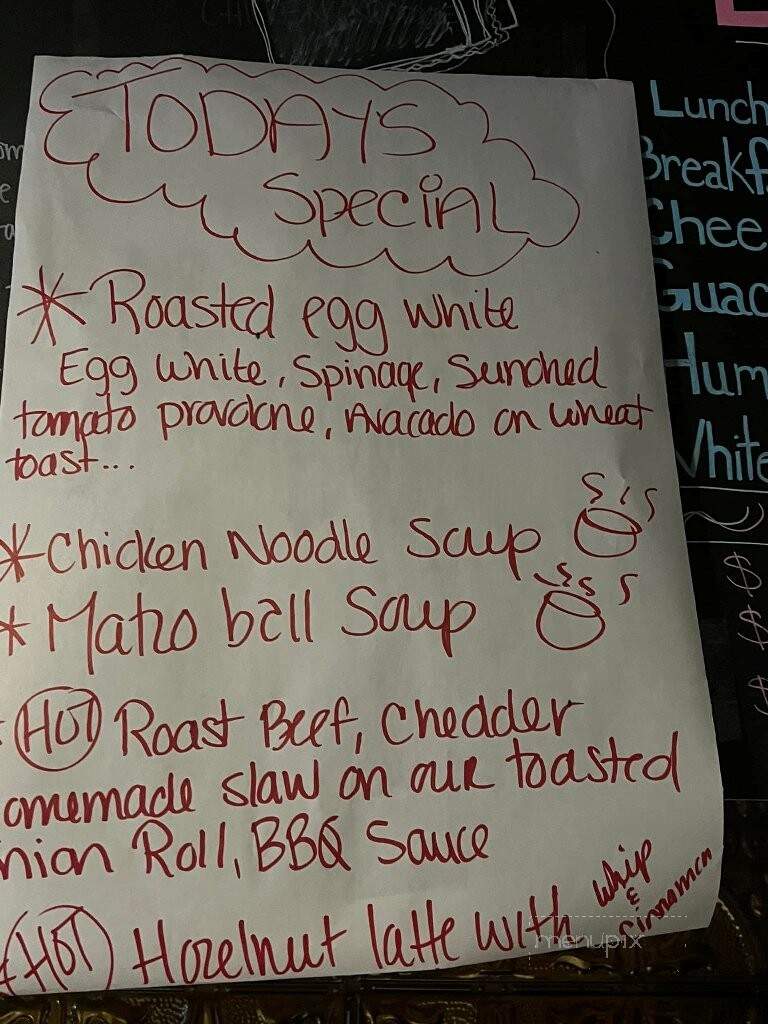 TODAYS
SpeciAL
* Roasted egg white
Egg white, Spinage, Sundned
tomato provolone, Avacado on wheat
toast...
* Chicken Noodle Soup
* Matzo ball Soup
* HOT Roast Beef, Chedder
omemade slaw on our toasted
nion Roll, BBQ Sauce
* HOT Hazelnut latte with whip
& Cinnamon
menupix
Lunch
Breakf
Chee
Guac
Hum
White
$
$
$